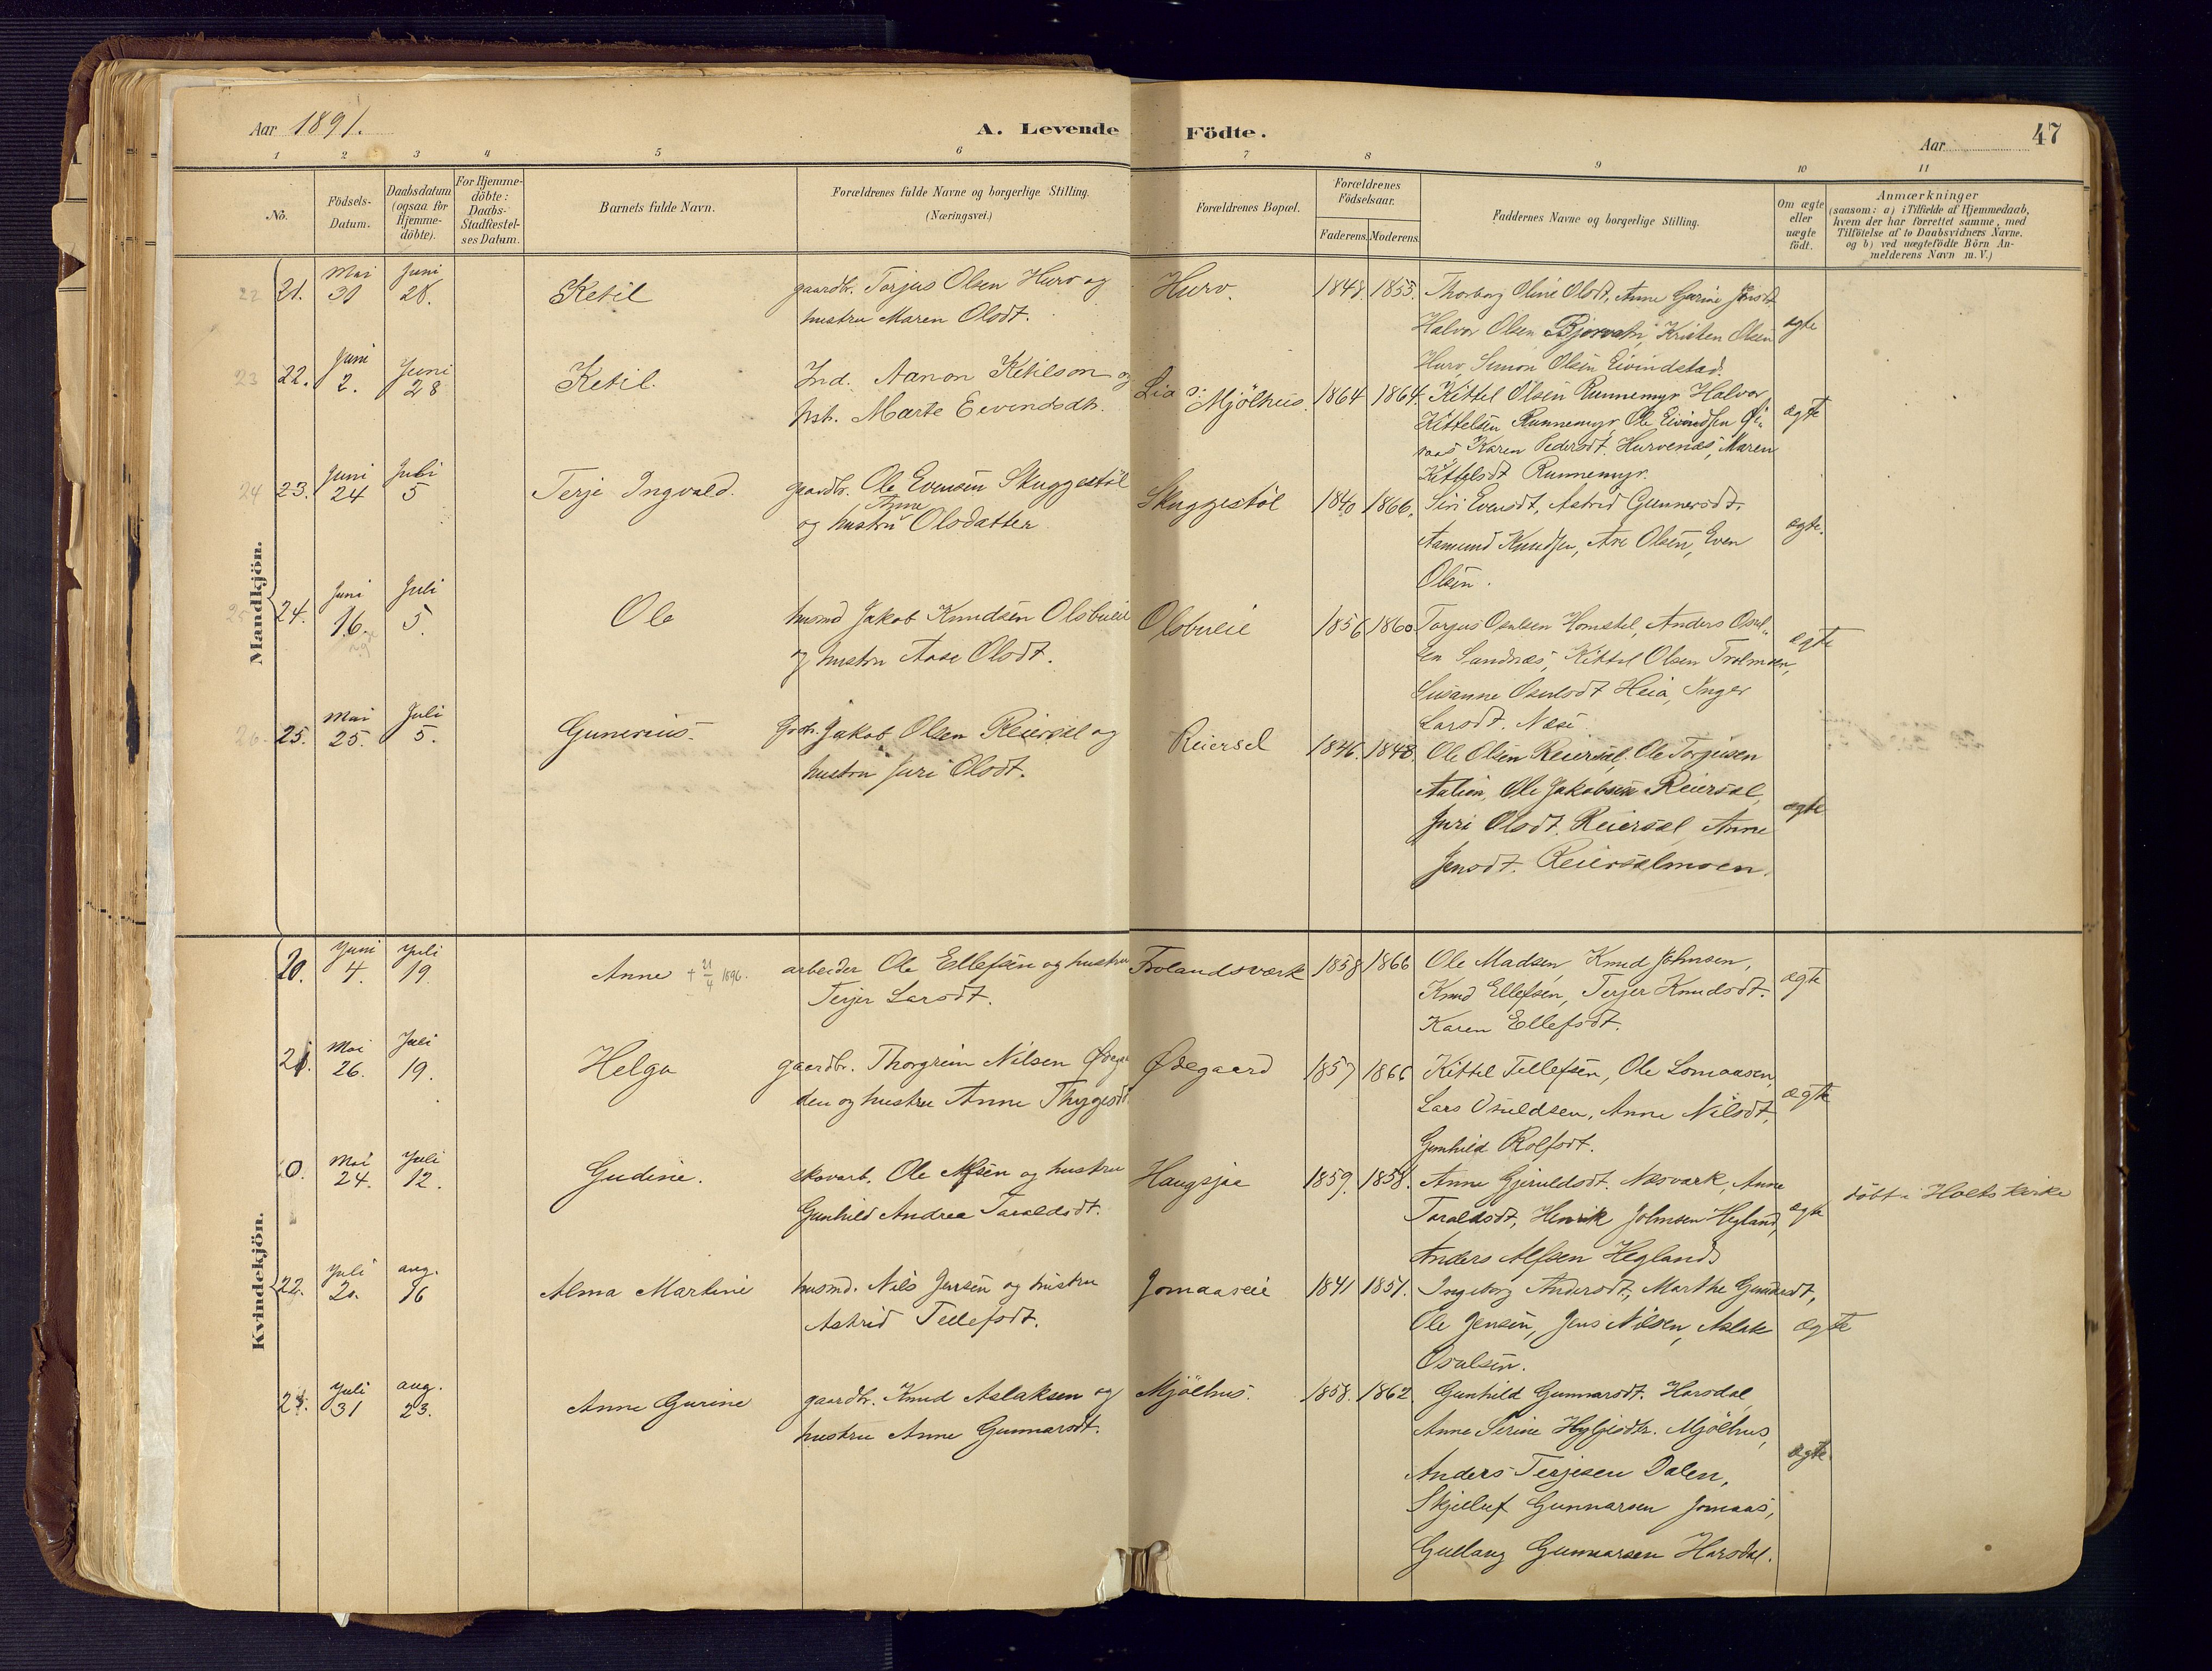 Aar 1891.
A. Levende Födte.
Aar
47
1 2 3 4 5 6 7 8 9 10 11
No.
Födsels-Datum.
Daabsdatum (ogsaa for Hjemme-döbte).
For Hjemme-döbte: Daabs-Stadfæstel-ses Datum.
Barnets fulde Navn.
Forældrenes fulde Navne og borgerlige Stilling. (Næringsvei.)
Forældrenes Bopæl.
Forældrenes Födselsaar.
Faderens. Moderens.
Faddernes Navne og borgerlige Stilling.
Om ægte eller uægte födt.
Anmærkninger
(saasom: a) i Tilfælde af Hjemmedaab,
hvem der har forrettet samme, med
Tilföielse af to Daabsvidners Navne.
og b) ved uægtefödte Börn An-
melderens Navn m. V.)
Mandkjön.
22 21. Mai 30 Juni 28. Ketil gaardbr. Torjus Olsen Hurv og
hustru Maren Olsdt.
Hurv. 1848 1855. Thorborg Oline Olsdt, Anne Gurine Jensdt
Halvor Olsen Bjorvatn, Kristen Olsen
Hurv, Simon Olsen Eivindstad.
ægte
23 22. Juni 2. Juni 28 Ketil. Ind. Aanon Ketilson og
hst. Marte Eevindsdtr.
Lia i Mjölhus. 1864 1864. Kittel Olsen Runnemyr, Halvor
Kittelsen Runnemyr, Ole Eivindsen
Karen Pedersdt. Hurvenæs, Maren
Kittelsdt Runnemyr.
ægte
24 23. Juni 24 Juli 5 Terje Ingvald. gaardbr. Ole Evensen Skuggestöl
og hustru Anne Olsdatter
Skuggestöl 1840 1866. Siri Evensdt, Astrid Gunnersdt.
Aamund Knudsen, Ave Olsen, Even
Olsen.
ægte.
25 24. Juni 16. Juli 5. Ole husmd Jakob Knudsen Olsbueie
og hustru Aase Olsdt.
Olsbueie 1856 1860 Torjus Osulsen Homstöl, Anders Osul-
sen Sandnæs, Kittel Olsen Trolmoen,
Susanne Osulsdt Heia, Inger
Larsdt. Næse
ægte
26. 25. Mai 25. Juli 5. Gunerius. Gbr. Jakob Olsen Reiersöl og
hustru Juri Olsdt.
Reiersel 1846. 1848. Ole Olsen Reiersöl, Ole Torjusen
Aalien, Ole Jakobsen Reiersöl,
Juri Olsdt. Reiersöl, Anne
Jensdt. Reiersölmoen.
ægte
Kvindekjön.
20. Juni 4. Juli 19. Anne + 21/4 1896. arbeider Ole Ellefsen og hustru
Terjer Larsdt.
Frolandsværk 1858 1866 Ole Madsen, Knud Johnsen,
Knud Ellefsen, Terjer Knudsdt.
Karen Ellefsdt.
ægte
21. Mai 26. Juli 19. Helga gaardbr. Thorgrim Nilsen Ødegaar
den og hustru Anne Thygesdt
Ødegaard 1857 1866 Kittel Tellefsen, Ole Lomaasen,
Lars Osuldsen, Anne Nilsdt,
Gunhild Rolfsdt.
ægte
0. Mai 24. Juli 12. Gudine. skovarb. Ole Alfsen og hustru
Gunhild Andrea Taraldsdt.
Haugsjae 1859. 1858. Anne Gjeruldsdt. Næsværk, Anne
Taraldsdt, Henrik Johnsen Hegland,
Anders Alfsen Hegland
ægte döbt i Holts kirke
22. Juli 20. aug. 16 Alma Martine husmd. Nils Jensen og hustru
Astrid Tellefsdt.
Jomaaseie 1841 1851. Ingeborg Andersdt, Marthe Gundersdt,
Ole Jensen, Jens Nilsen, Aslak
Osulsen.
ægte
23. Juli 31 aug. 23. Anne Gurine gaardbr. Knud Aslaksen og
hustru Anne Gunnarsdt.
Mjölhus. 1858. 1862 Gunhild Gunnarsdt. Harsdal,
Anne Serine Hylgjesdtr. Mjölhus,
Anders Terjesen Dalen,
Skjeluf Gunnarsen Jomaas,
Gullang Gunnarsen Harsdal.
ægte.